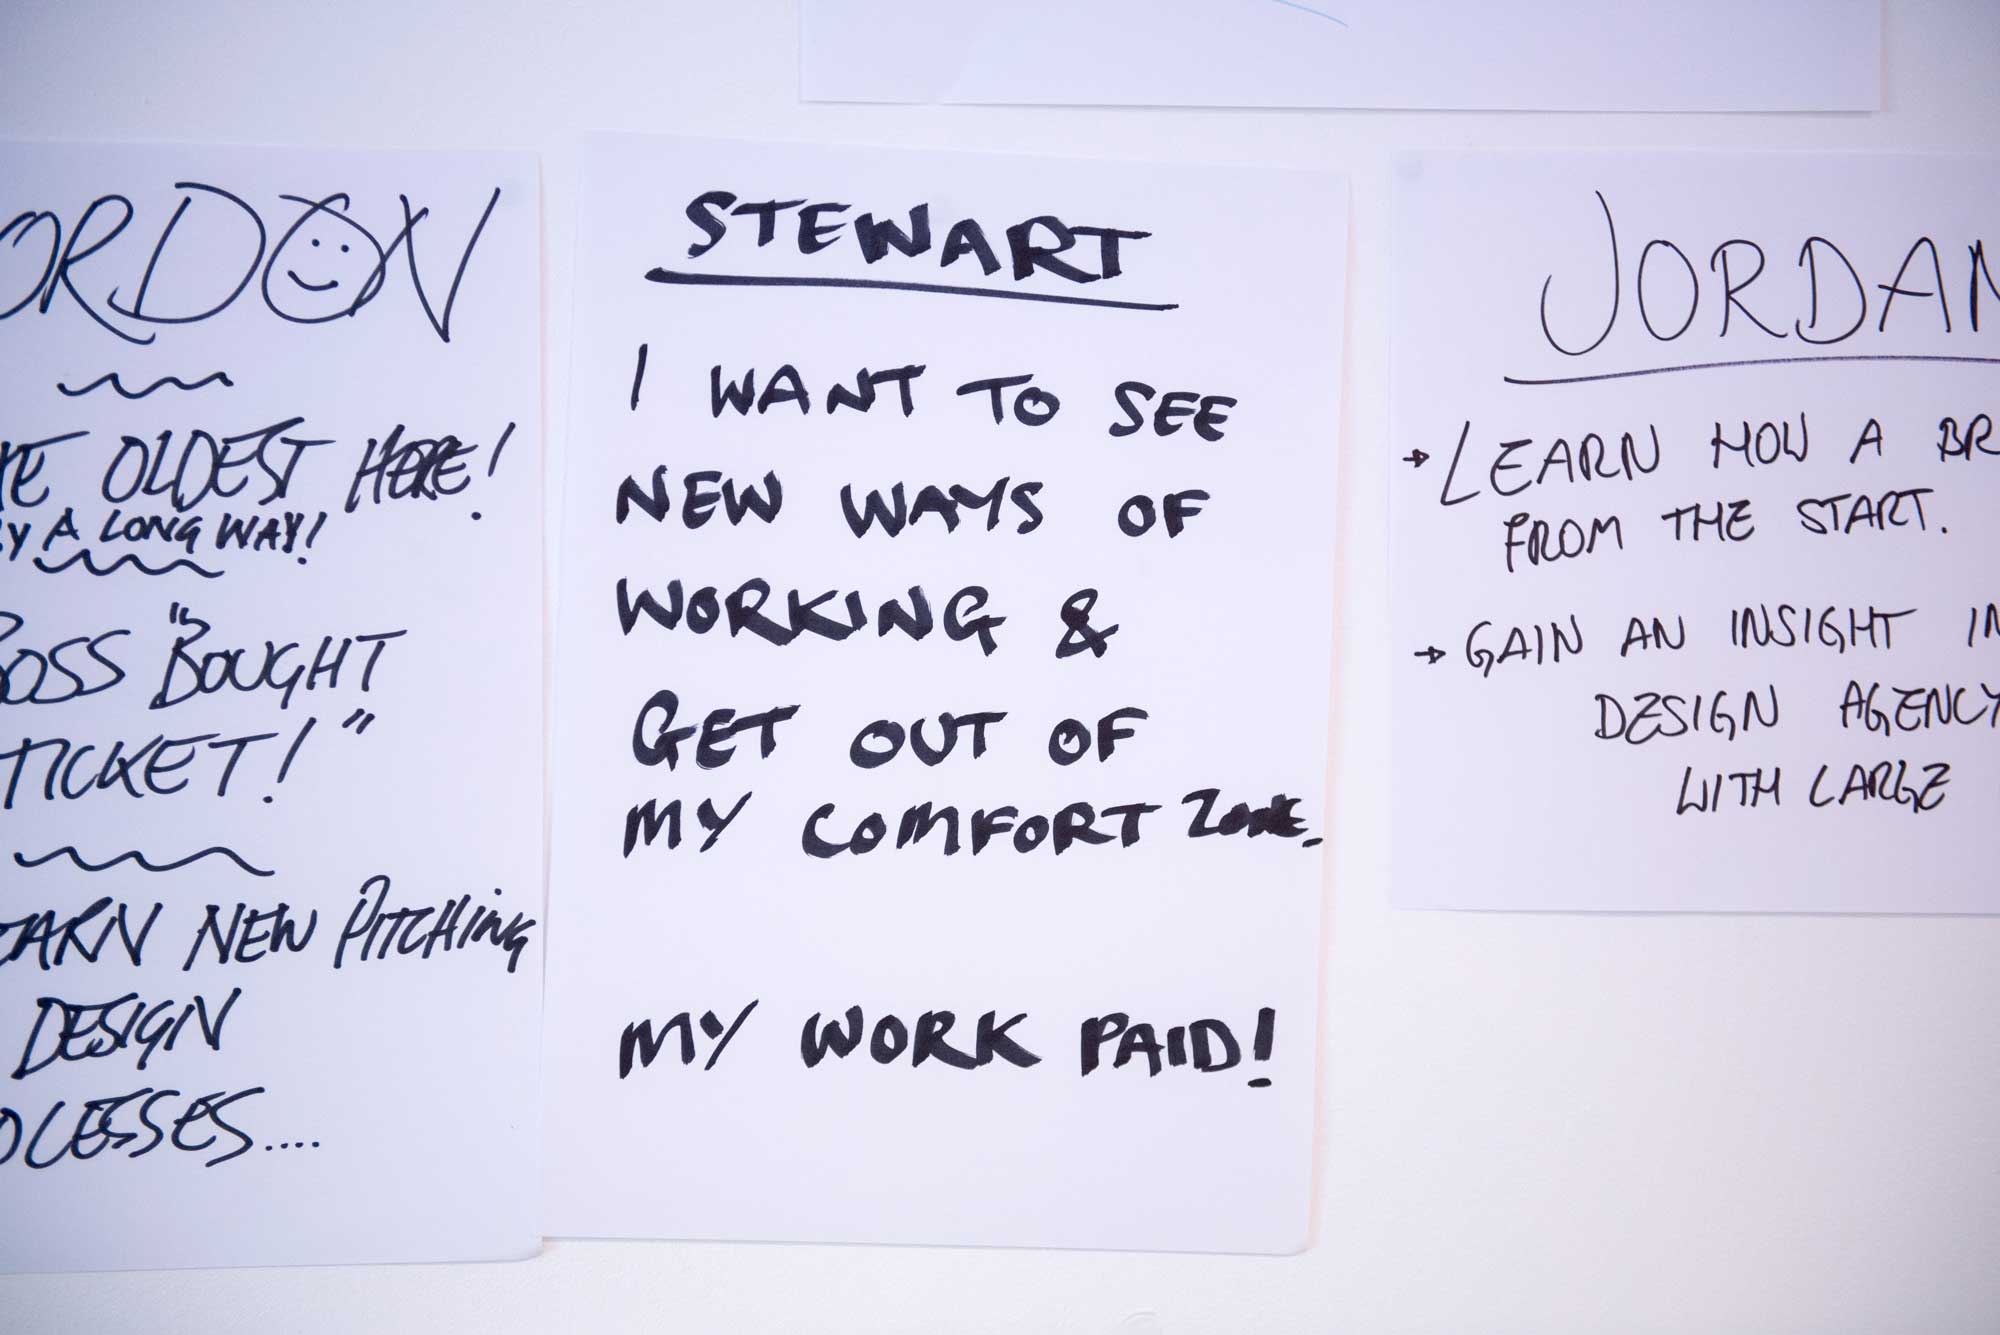 ORDON
HE OLDEST HERE!
BY A LONG WAY!
BOSS "BOUGHT
TICKET!"
EARN NEW PITCHING
DESIGN
OCESSES....
STEWART
I WANT TO SEE
NEW WAYS OF
WORKING &
GET OUT OF
MY COMFORT ZONE.
MY WORK PAID!
JORDAN
→ LEARN HOW A BR
FROM THE START.
→ GAIN AN INSIGHT IN
DESIGN AGENCY
WITH LARGE